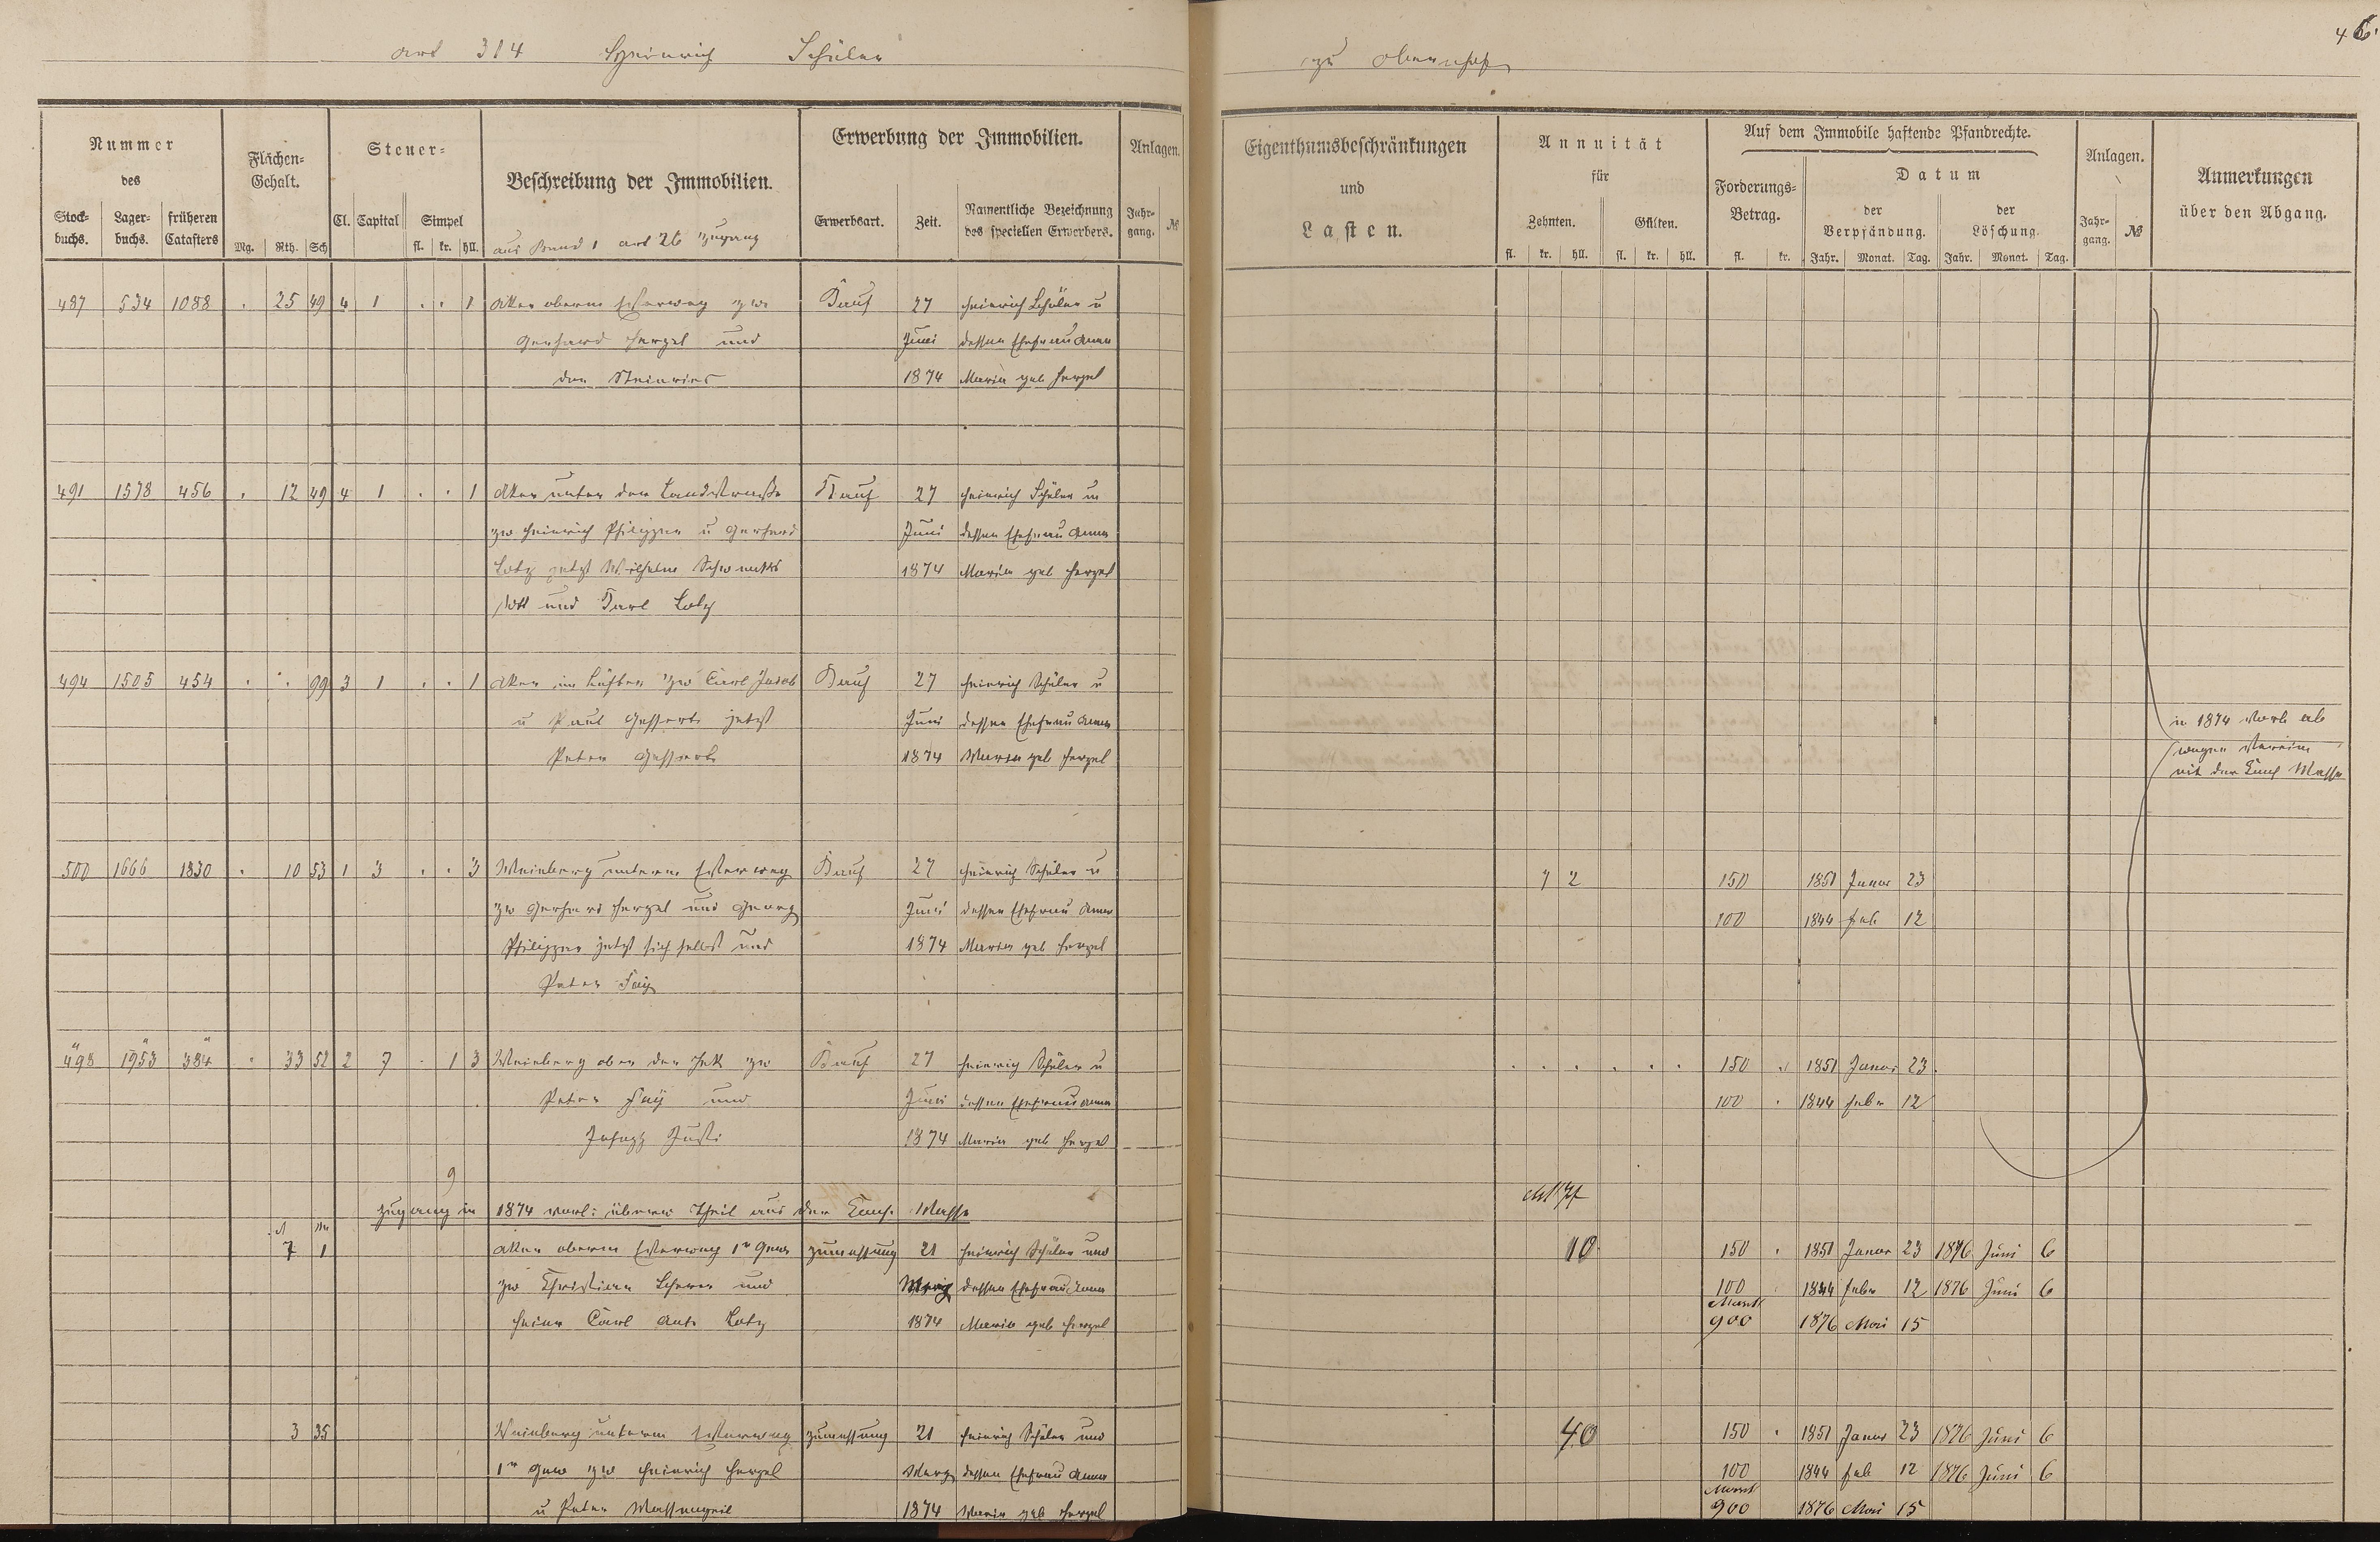 art 314 Heinrich Schüler
zu Obernhof
46.
Nummer des
Stockbuchs. Lagerbuchs. früheren Catasters
Flächen-Gehalt.
Mg. Rth. Sch
Steuer-
Cl. Capital Simpel
fl. kr. hll.
Beschreibung der Immobilien.
aus Band 1 art 26 Zugang
Erwerbung der Immobilien.
Erwerbsart. Zeit. Namentliche Bezeichnung des speciellen Erwerbers.
Anlagen.
Jahrgang. №
Eigenthumsbeschränkungen
und
Lasten.
Annuität
für
Zehnten. Gülten.
fl. kr. hll. fl. kr. hll.
Auf dem Immobile haftende Pfandrechte.
Forderungs-Betrag.
fl. kr.
Datum
der Verpfändung. der Löschung.
Jahr. Monat. Tag. Jahr. Monat. Tag.
Anlagen.
Jahrgang. №
Anmerkungen
über den Abgang.
487 534 1088 . 25 49 4 1 . . 1 Aker oberm zw Kauf 27 Heinrich Schüler u
Gerhard Herzel und Juni dessen Ehefrau Anna
1874 Maria geb Herzel
491 1578 456 . 12 49 4 1 . . 1 Aker unter der Landstraße Kauf 27 Heinrich Schüler u
zw Heinrich Philippen u Gerhard Juni dessen Ehefrau Anna
Lotz jetzt Wilhelm 1874 Maria geb Herzel
und Karl Lotz
494 1505 454 . . 99 3 1 . . 1 Aker im zw Carl Jacob Kauf 27 Heinrich Schüler u
u Paul jetzt Juni dessen Ehefrau Anna
Peter 1874 Maria geb Herzel
in 1874
wegen
mit der Masse
500 1666 1330 . 10 53 1 3 . . 3 Weinberg unterm Kauf 27 Heinrich Schüler u
7 2 150 1851 Januar 23
zw Gerhard Herzel und Georg Juni dessen Ehefrau Anna
100 1844 Feb 12
Philippen jetzt sich selbst und 1874 Maria geb Herzel
Peter Fay
498 1953 384 . 33 52 2 7 . 1 3 Weinberg ober der zw Kauf 27 Heinrich Schüler u
150 1851 Januar 23
Peter Fay und Juni dessen Ehefrau Anna
100 . 1844 Febr 12
Joseph 1874 Maria geb Herzel
9
Zugang in 1874 Theil aus der Masse
7 1 Aker oberm 1r Gew Zumessung 21 Heinrich Schüler und
10 150 . 1851 Januar 23 1876 Juni 6
zw Christian und März dessen Ehefrau Anna
100 1844 Febr 12 1876 Juni 6
Carl Lotz 1874 Maria geb Herzel
Mark
900 1876 Mai 15
3 35 Weinberg unterm Zumessung 21 Heinrich Schüler und
40 150 . 1851 Januar 23 1876 Juni 6
1r Gew zw Heinrich Herzel März dessen Ehefrau Anna
100 1844 Feb 12 1876 Juni 6
u Peter Massengeil 1874 Maria geb Herzel
Mark
900 1876 Mai 15